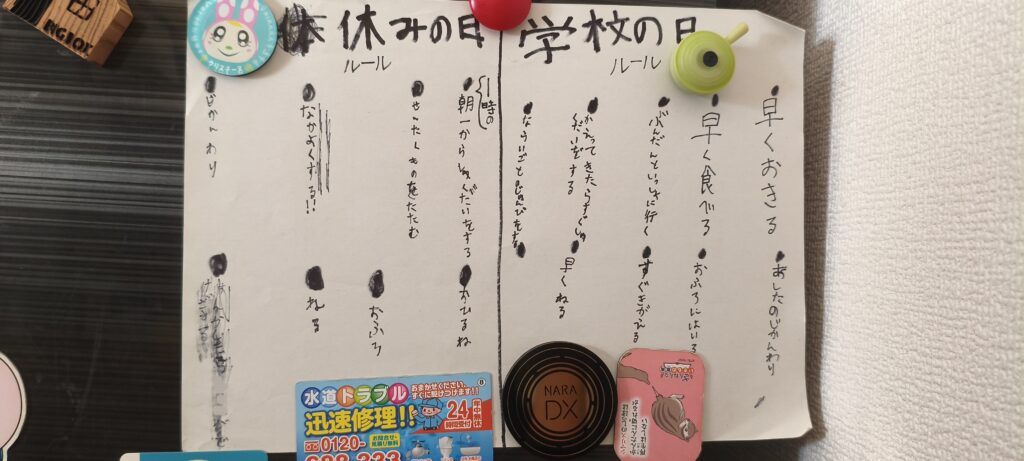 学校の日
ルール
早くおきる
早く食べる
ぶんだんといっしょに行く
かえってきたらすぐしゅくだいをする
ならいごとじゅんびをする
あしたのじかんわり
おふろにはいる
すぐきがえる
早くねる
休みの日
ルール
1時の
朝一からしゅくだいをする
せんたくものをたたむ
なかよくする!!
じかんわり
おひるね
おふろ
ねる
クリスチーヌ
NARA
DX
水道トラブル
おまかせください。
すぐに駆けつけます!!
迅速修理!!
24
時間受付
年中無休
お問合せ・見積り無料
0120-